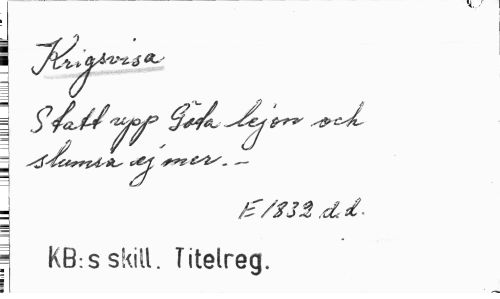 Krigsvisa
Statt upp Göta lejon och
slumra ej mer. –
E 1832 d.d.
KB:s skill. Titelreg.